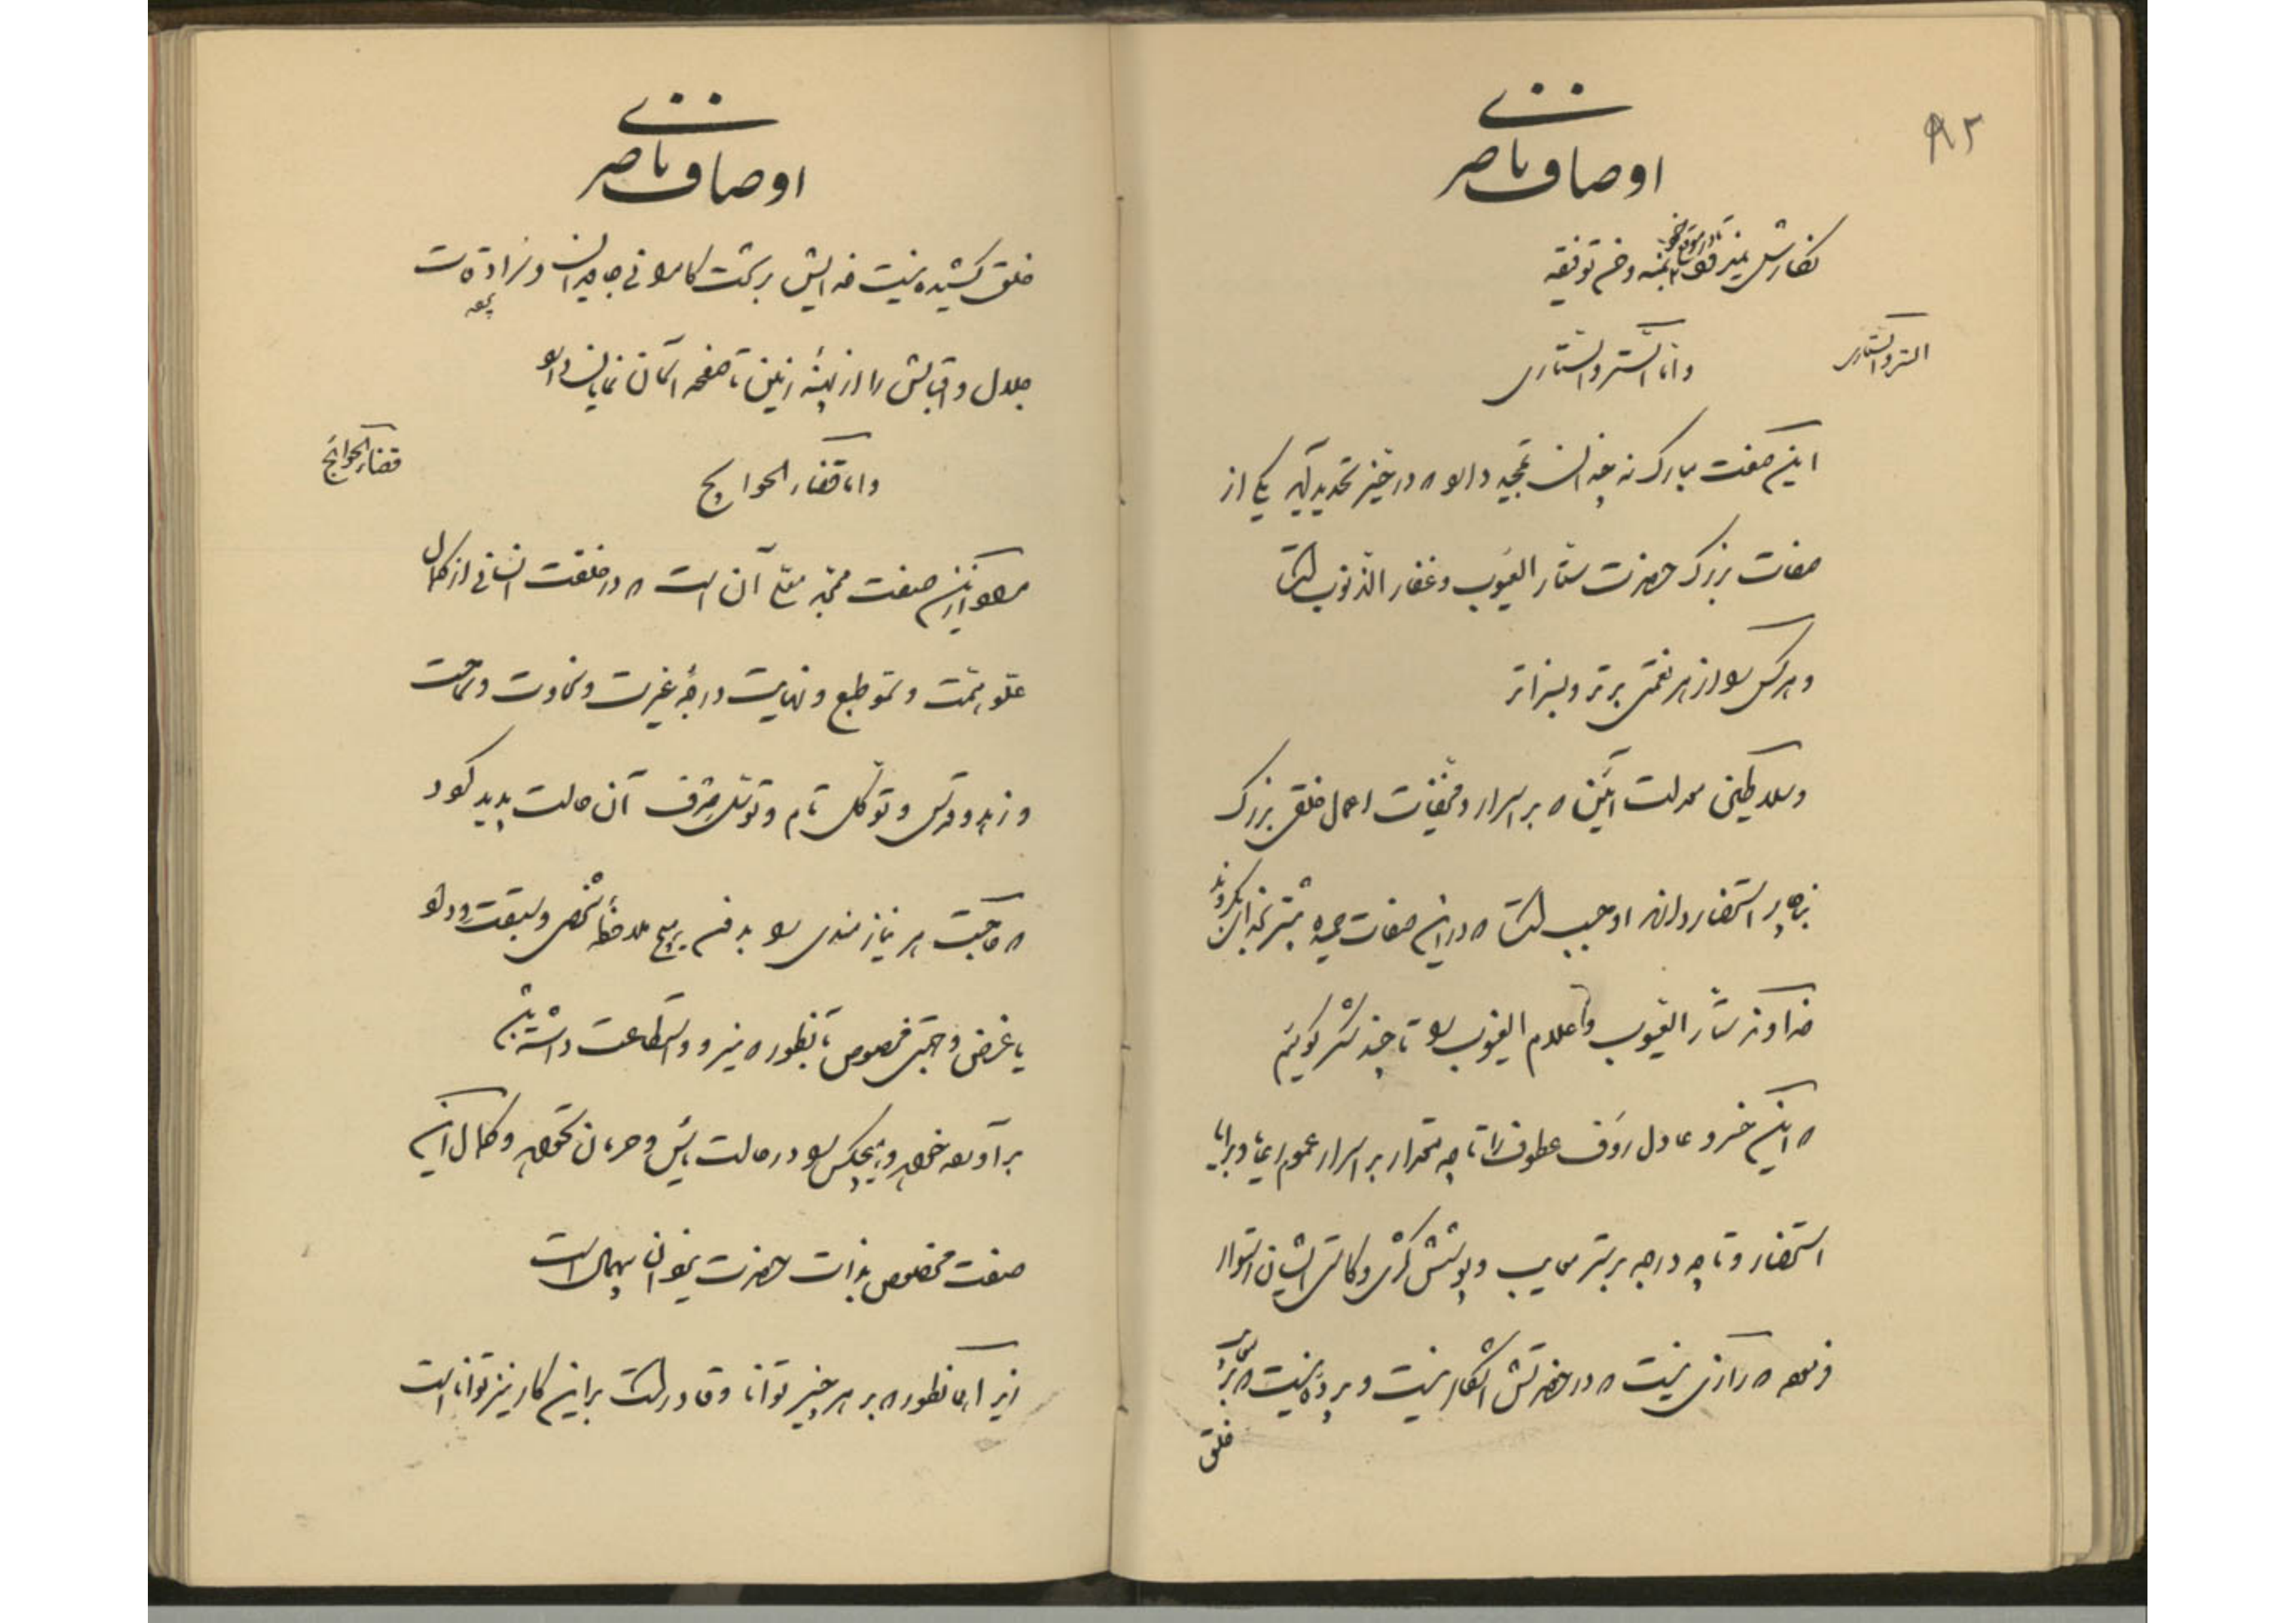 ۹۲
اوصاف ناصری
نگارش
السر والستاری
و اما الستر والستاری
این صفت مبارک نه چندان تمجید دارد که در حیز تحدید آید یکی از
صفات بزرگ حضرت ستار العیوب و غفار الذنوب است
و هرکس را از هر نعمتی برتر و بسزاتر
و سلاطین معدلت آئین که بر اسرار و مخفیات اعمال خلق بزرگ
بناچار استحضار دارند اوجب است که در این صفات حمیده بیشتر
خداوند ستار العیوب و علام الغیوب را تا چند شکر گوئیم
که این خسرو عادل رؤف عطوف را تا چه مقدار بر اسرار عموم رعایا و برایا
استحضار و تا چه درجه بر ستر معایب و پوشش کژی و کاستی ایشان استوار
فرموده که رازی نیست که در حضرتش آشکار نیست و پرده نیست که بر
خلق
اوصاف ناصری
خلق کشیده نیست خدایش برکت کامرانی جاویدان و
جلال و اقبالش را از پهنهٔ زمین تا صفحه آسمان نمایان دارد
قضاء الحوائج
و اما قضاء الحوایج
مراد از این صفت ممجد معلی آن است که در خلقت انسانی از کمال
علو همت و سمو طبع و نهایت درجهٔ غیرت و سخاوت و سماحت
و زهد و قدس و توکل تام و توسل صرف آن حالت پدید گردد
که حاجت هر نیازمندی را بدون هیچ ملاحظهٔ شخصی و سبقت
یا غرض و جهتی مخصوص تا بانطور که نیرو و استطاعت داشته باشد
برآورده خواهد و هیچکس را در حالت یأس و حرمان نخواهد و کمال این
صفت مخصوص بذات حضرت یزدان بیهمال است
زیرا همانطور که بر هر چیز توانا و قادر است براین کار نیز توانا است